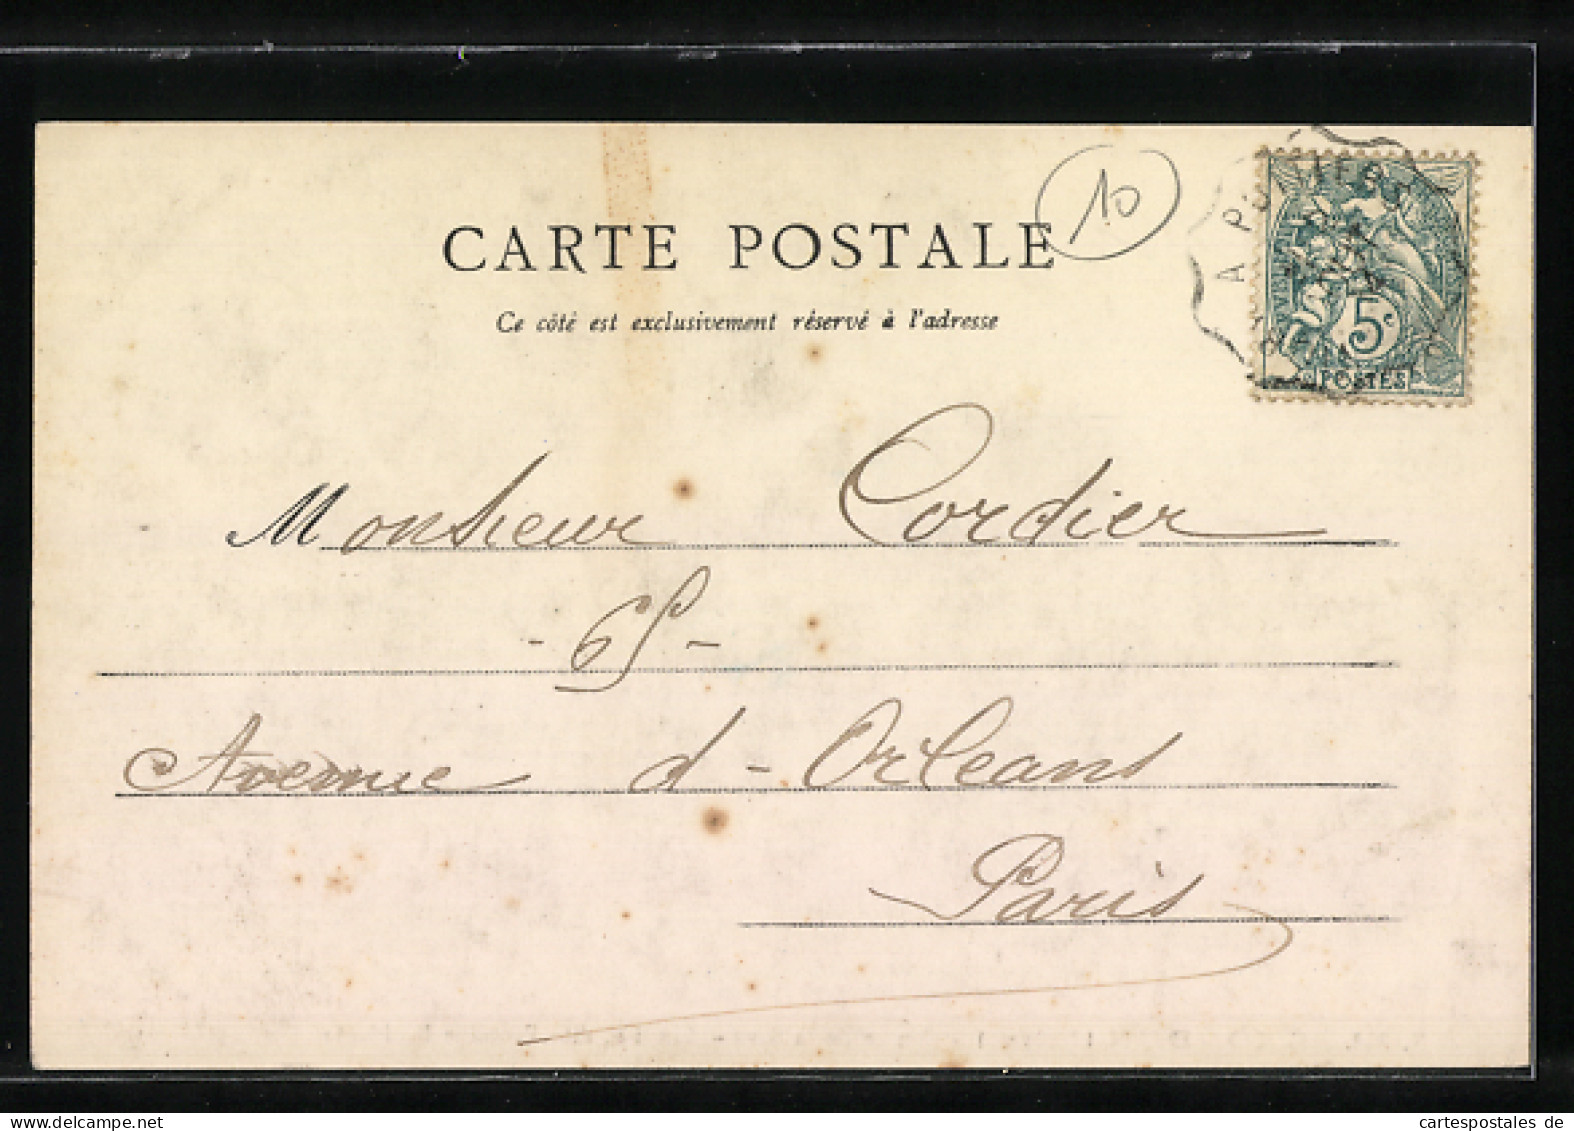 CARTE POSTALE
10
Ce côté est exclusivement réservé à l'adresse
A POITIERS
5c
POSTES
Monsieur Cordier
- 65 -
Avenue d-Orleans
Paris
cartespostales de